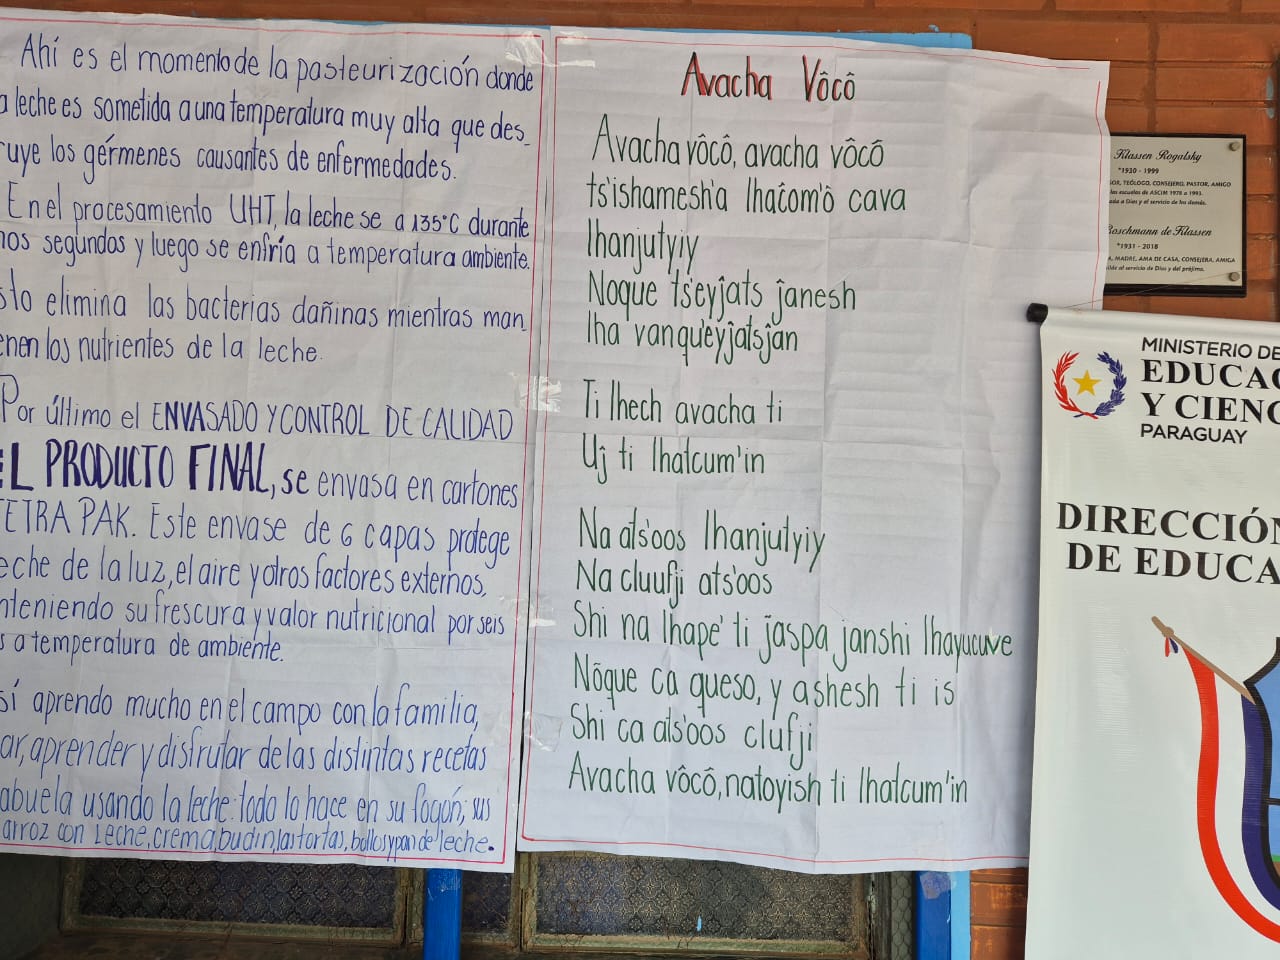 Ahí es el momento de la pasteurización donde
a leche es sometida a una temperatura muy alta que des_
ruye los gérmenes causantes de enfermedades.
En el procesamiento UHT, la leche se a 135°C durante
nos segundos y luego se enfría a temperatura ambiente.
sto elimina las bacterias dañinas mientras man_
enen los nutrientes de la leche.
Por último el ENVASADO Y CONTROL DE CALIDAD
EL PRODUCTO FINAL, se envasa en cartones
TETRA PAK. Este envase de 6 capas protege
eche de la luz, el aire y otros factores externos,
nteniendo su frescura y valor nutricional por seis
s a temperatura de ambiente.
sí aprendo mucho en el campo con la familia,
ar, aprender y disfrutar de las distintas recetas
abuela usando la leche: todo lo hace en su fogón; sus
arroz con Leche, crema, budin, las tortas, bollos y pan de leche.
Avacha Vôcô
Avacha vôcô, avacha vôcô
ts'ishamesh'a lhatcom'ô cava
lhanjutyiy
Noque ts'eyĵats ĵanesh
lha vanqu'eyĵatsĵan
Ti lhech avacha ti
Uĵ ti lhatcum'in
Na ats'oos lhanjutyiy
Na cluufji ats'oos
Shi na lhape' ti ĵaspa janshi lhayucuve
Nôque ca queso, y ashesh ti is
Shi ca ats'oos clufji
Avacha vôcô, natoyish ti lhatcum'in
Klassen Rogalsky
*1930 - 1999
OR, TEÓLOGO, CONSEJERO, PASTOR, AMIGO
las escuelas de ASCIM 1978 a 1993.
ada a Dios y el servicio de los demás.
Boschmann de Klassen
*1931 - 2018
A, MADRE, AMA DE CASA, CONSEJERA, AMIGA
lde al servicio de Dios y del prójimo.
MINISTERIO DE
EDUCAC
Y CIENC
PARAGUAY
DIRECCIÓN
DE EDUCA